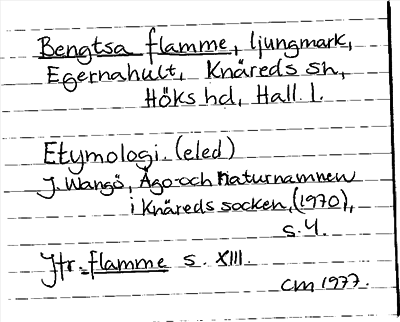 Bengtsa flamme, ljungmark,
Egernahult, Knäreds sn,
Höks hd, Hall. l.
Etymologi. (eled)
J. Wangö, Ägo- och Naturnamnen
i Knäreds socken, (1970),
s. 4.
Jfr. flamme s. XIII.
CM 1977.